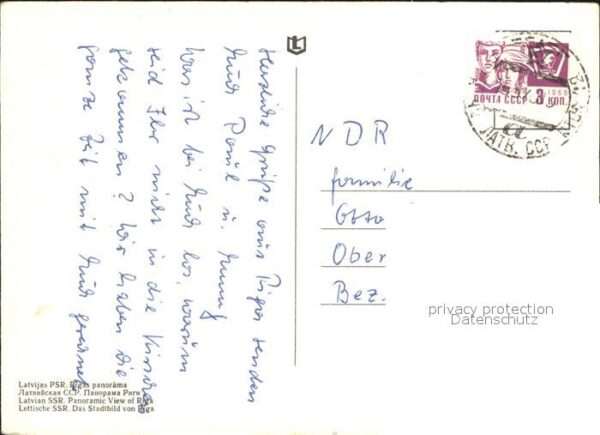 Herzliche Grüße aus Riga senden
Euch Paul u.
Was ist bei Euch los, warum
seid Ihr nicht in die
gekommen? Wir haben die
ganze Zeit mit Euch gerechnet
NDR
Familie
Otto
Ober
Bez.
1966
ПОЧТА СССР 3 КОП.
ЛАТВ. ССР
privacy protection
Datenschutz
Latvijas PSR. Rīgas panorāma
Латвийская ССР. Панорама Риги
Latvian SSR. Panoramic View of Riga
Lettische SSR. Das Stadtbild von Riga